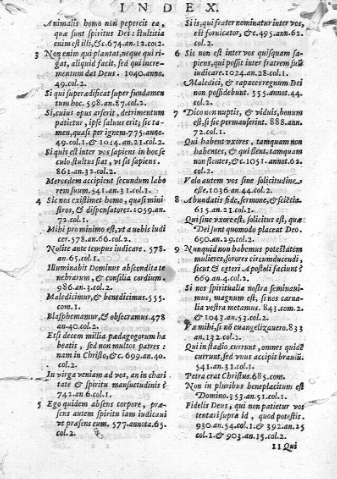 INDEX.
Animalis homo non percepit ea,
quæ sunt spiritus Dei: stultitia
enim est illi, &c. 674.an.12.co.2
3 Non enim qui plantat, neque qui ri-
gat, aliquid facit, sed qui incre-
mentum dat Deus. 1040.anno.
49.col.2.
Si qui superædificat super fundamen
tum hoc. 598.an.87.col.2.
Si, cuius opus arserit, detrimentum
patietur, ipse saluus erit, sic ta-
men, quasi per ignem. 775.anno.
49.col.1. & 1014.an.21.col.2
Si quis est inter vos sapiens in hoc se
culo stultus fiat, vt sit sapiens.
861.an.32.col.2.
Mercedem accipient secundum labo
rem suum. 541.an.31.col.1.
4 Sic nos existimet homo, quasi mini
stros, & dispensatores. 1059.an.
72.col.1.
Mihi pro minimo est, vt a uobis iudi
cer. 578.an.66.col.2.
Nolite ante tempus iudicare. 578.
an.65.col.1.
Illuminabit Dominus abscondita te
nebrarum, & consilia cordium.
986.an.3.col.2.
Maledicimur, & benedicimus. 555.
com.1.
Blasphemamur, & obsecramus. 478
an.40.col.2.
Etsi decem millia pædagogorum ha
beatis, sed non multos patres:
nam in Christo, &c. 699.an.40.
col.2.
In virga veniam ad vos, an in charita
te & spiritu mansuetudinis?
742.an.6.col.1.
5 Ego quidem absens corpore, præ-
sens autem spiritu iam iudicaui
vt præsens eum. 577.annota.65.
col.2.
Si is, qui frater nominatur inter vos,
est fornicator, &c. 495.ann.62.
col.2.
6 Sic non est inter vos quisquam sa-
piens, qui possit inter fratrem suum
iudicare. 1024.an.28.col.1.
Maledici, & rapaces regnum Dei
non possidebunt. 555.annot.44.
col.2.
7 Dico non nuptis, & viduis, bonum
est, si sic permanserint. 888.ann.
72.col.1.
Qui habent vxores, tamquam non
habentes, & qui flent, tamquam
non flentes, &c. 1051.annot.62.
col.2.
Volo autem vos sine solicitudine
esse. 1036.an.44.col.2.
8 Abundatis fide, sermone, & scientia.
615.an.21.col.1.
Qui sine vxore est, solicitus est, quæ
Dei sunt quomodo placeat Deo.
690.an.29.col.2.
9 Nunquid non habemus potestatem
mulieres sorores circumducendi,
sicut & ceteri Apostoli faciunt?
669.an.4.col.2.
Si nos spiritualia vestra seminaui-
mus, magnum est, si nos carna-
lia vestra metamus. 843.com.2.
& 1043.an.53.col.2.
Væ mihi, si nõ euangelizauero. 833
an.132.col.2.
Qui in stadio currunt, omnes quidẽ
currunt, sed vnus accipit brauiũ.
541.an.31.col.1.
Petra erat Christus. 685.com.
Non in pluribus beneplacitum est
Domino. 353.an.51.col.1.
Fidelis Deus, qui non patietur vos
tentari supra id, quod potestis.
930.an.54.col.1. & 392.an.25
col.1. & 903.an.15.col.2.
11 Qui